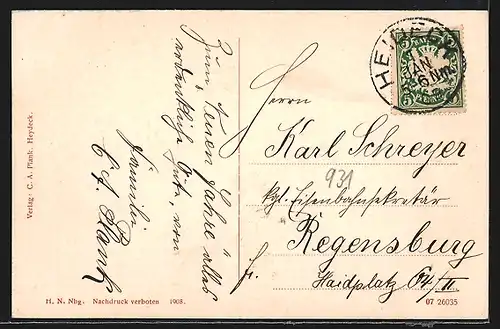 Zum Neuen Jahre alles
erdenklich Gute, von
Familie
C. A. Plank
Verlag: C. A. Plank, Heydeck.
H. N. Nbg. Nachdruck verboten 1908.
HEIDECK
JAN
6 Nm
Herrn
Karl Schreyer
931
kgl. Eisenbahnsekretär
Regensburg
Haidplatz
fr.
07 26035